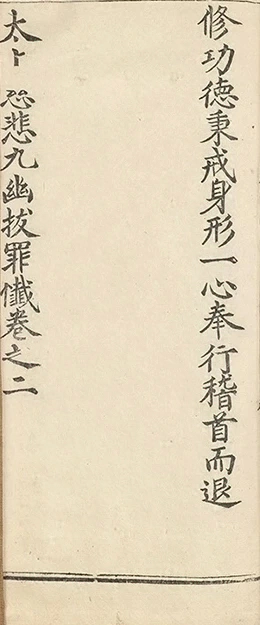 修功德秉戒身形一心奉行稽首而退
太上慈悲九幽拔罪懺卷之二